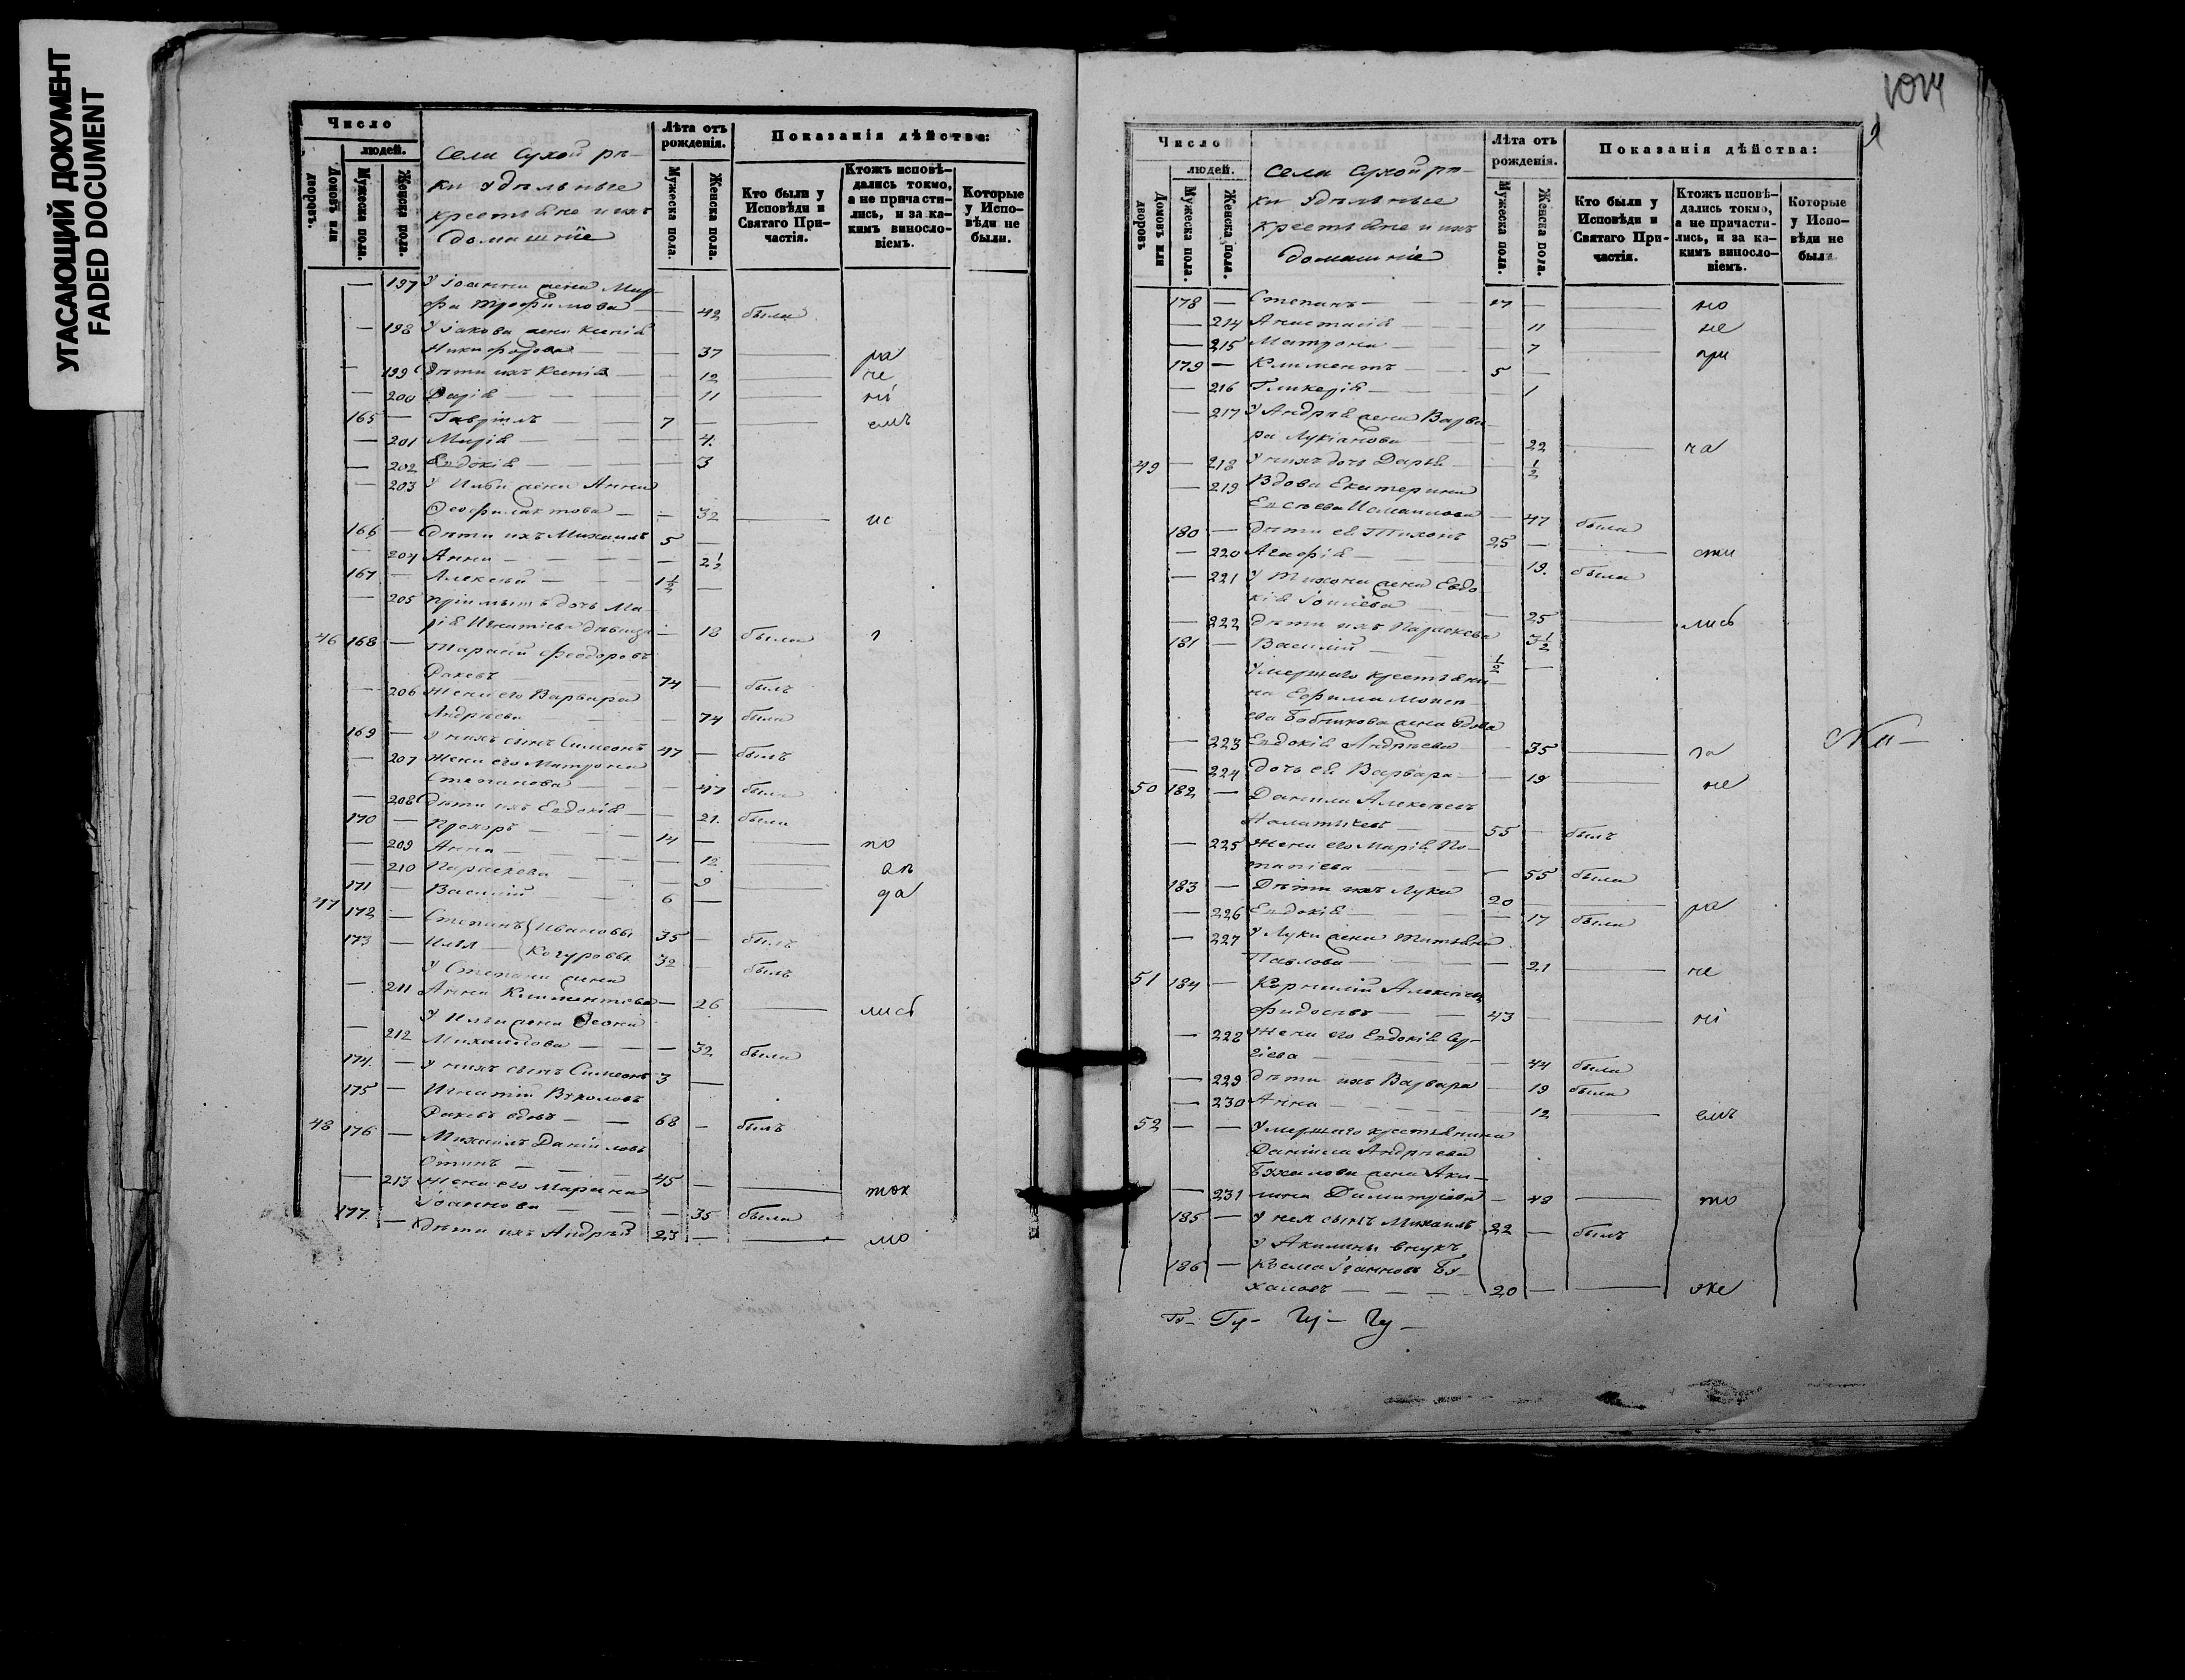 УГАСАЮЩИЙ ДОКУМЕНТ
FADED DOCUMENT
Число
людей.
Домовъ или дворовъ.
Мужеска пола.
Женска пола.
Села Сухой рѣ-
ки удѣльные
крестьяне и ихъ
домашніе
Лѣта отъ рожденія.
Мужеска пола.
Женска пола.
Показанія дѣйства:
Кто были у Исповѣди и Святаго Причастія.
Ктожъ исповѣдались токмо, а не причастились, и за какимъ винословіемъ.
Которые у Исповѣди не были.
— 197 У Іоанна жена Мар-
фа Трофимова — 42 была
— 198 У Іакова жена Ксенія
Никифорова — 37 — ра
— 199 Дѣти ихъ Ксенія — 12 — не
— 200 Дарія — 11 — ні
165 — Гавріилъ — 7 — емъ
— 201 Марія — 4
— 202 Евдокія — 3
— 203 У Ильи жена Анна
Ѳеофилактова — 32 — ис
166 — Дѣти ихъ Михаилъ 5 —
— 204 Анна — 2 1/2
167 — Алексѣй — 1 1/2 —
— 205 дочь Ма-
рія Игнатіева дѣвица — 18 была
46 168 — Тарасій Ѳеодоровъ
Ракевъ 74 — былъ
— 206 Жена его Варвара
Андрѣева — 74 была
169 — У нихъ сынъ Симеонъ 47 — былъ
— 207 Жена его Матрона
Степанова — 47 была
— 208 Дѣти ихъ Евдокія — 21 была
170 — Прохоръ — 14 — по
— 209 Анна — 12
— 210 Параскева — 9
171 — Василій — 6 — да
47 172 — Степанъ Ивановы 35 — былъ
173 — Илія — Кочуровы 32 былъ
У Степана жена
— 211 Анна Климентова — 26 — лись
У Ильи жена Ѳеона
— 212 Михаилова — 32 была
174 — У нихъ сынъ Симеонъ 3 —
175 — Игнатій Вуколовъ
Ракевъ вдовъ — 68 — былъ
48 176 — Михаилъ Даніиловъ
45 —
— 213 Жена его Марина
Іоаннова — 35 была
177 — Дѣти ихъ Андрѣй 23 — мо
Число
людей.
Домовъ или дворовъ
Мужеска пола.
Женска пола.
Села Сухой рѣ-
ки удѣльные
крестьяне и ихъ
домашніе
Лѣта отъ рожденія.
Мужеска пола.
Женска пола.
Показанія дѣйства:
Кто были у Исповѣди и Святаго Причастія.
Ктожъ исповѣдались токмо, а не причастились, и за какимъ винословіемъ.
Которые у Исповѣди не были.
178 — Степанъ — 17 — но
— 214 Анастасія — 11 — не
— 215 Матрона — 7 — при
179 — Климентъ — 5 —
— 216 Гликерія — 1
— 217 У Андрѣя жена Варва
ра Лукіанова — 22 — ча
49 — 218 У нихъ дочь Дарья — 1/2
— 219 Вдова Екатерина
Евсѣева — 47 была
180 — Дѣти её Тихонъ 25 — сти
— 220 Агафія — 19 была
— 221 У Тихона жена Евдо
кія — 25 — лись
— 222 Дѣти ихъ Параскева 3 1/2
181 — Василій — 1/2 —
Умершаго крестьяни-
на Ефима Моисе
ева Бобникова жена вдова
— 223 Евдокія Андрѣева — 35 — за
— 224 дочь её Варвара — 19 — не
50 182 — Данила Алексѣевъ
55 — былъ
— 225 Жена его Марія По-
тапіева — 55 была
183 — Дѣти ихъ Лука 20 — ра
— 226 Евдокія — 17 была
— 227 У Луки жена Татьяна
Павлова — 21 — че
51 184 — Корнилій Алексѣевъ
43 — ні
— 228 Жена его Евдокія Сер-
гіева — 44 была
— 229 Дѣти ихъ Варвара — 19 была
— 230 Анна — 12 — емъ
52 — — Умершаго крестьянина
Даніила Андрѣева
жена Аки-
— 231 лина Димитріева — 48 — то
185 — У нея сынъ Михаилъ 22 — былъ
У Акилины внукъ
186 — Козма Іоанновъ Бу-
халовъ — 20 — же